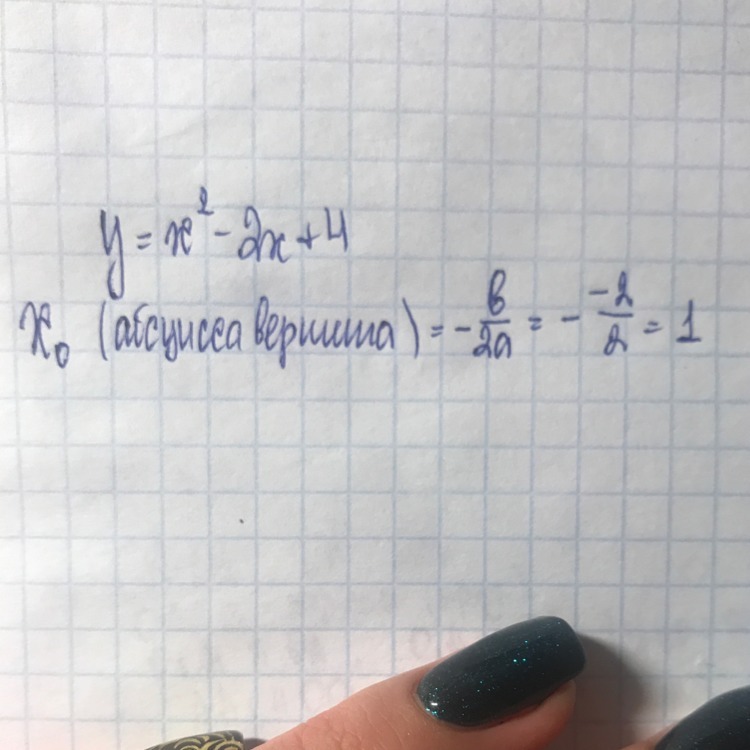 y = x² - 2x + 4
x₀ (абсцисса вершина) = - в/2a = - -2/2 = 1